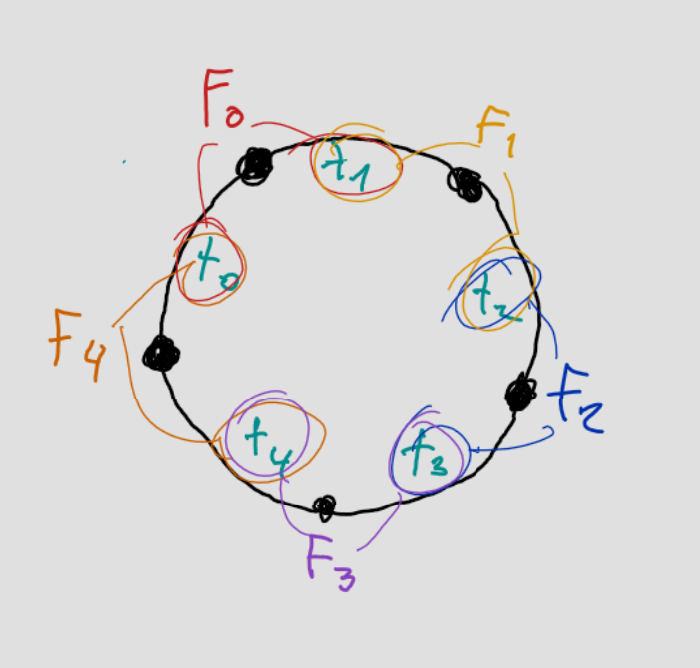 F₀
F₁
t₁
t₀
t₂
F₄
F₂
t₄
t₃
F₃